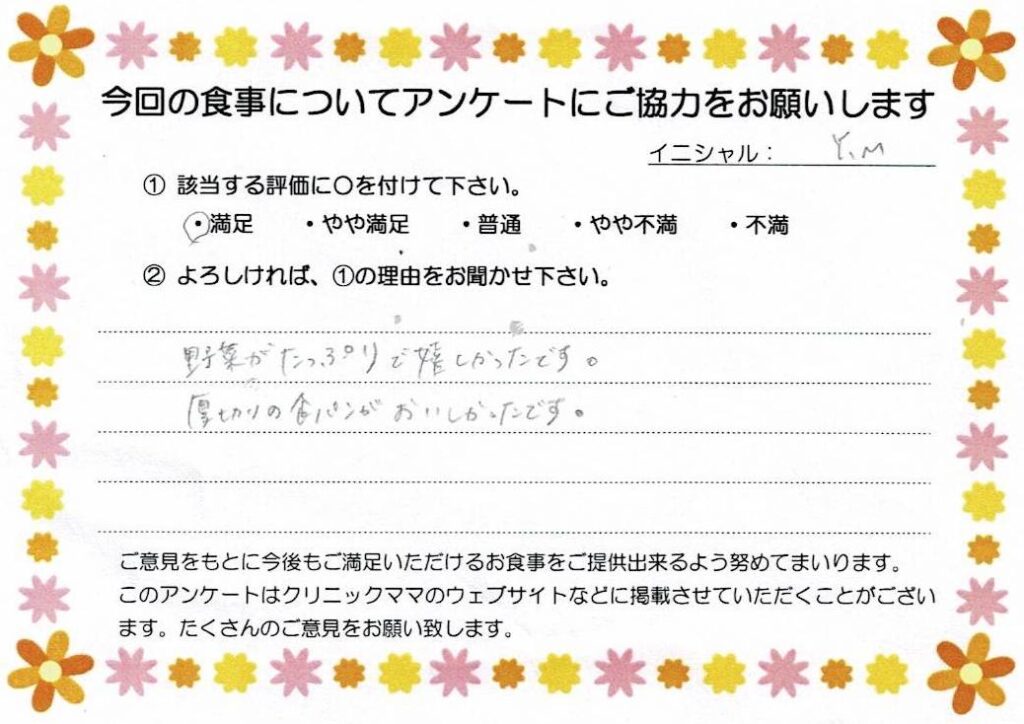 今回の食事についてアンケートにご協力をお願いします
イニシャル： Y.M
① 該当する評価に○を付けて下さい。
・満足 ・やや満足 ・普通 ・やや不満 ・不満
② よろしければ、①の理由をお聞かせ下さい。
野菜がたっぷりで嬉しかったです。
厚切りの食パンがおいしかったです。
ご意見をもとに今後もご満足いただけるお食事をご提供出来るよう努めてまいります。
このアンケートはクリニックママのウェブサイトなどに掲載させていただくことがござい
ます。たくさんのご意見をお願い致します。